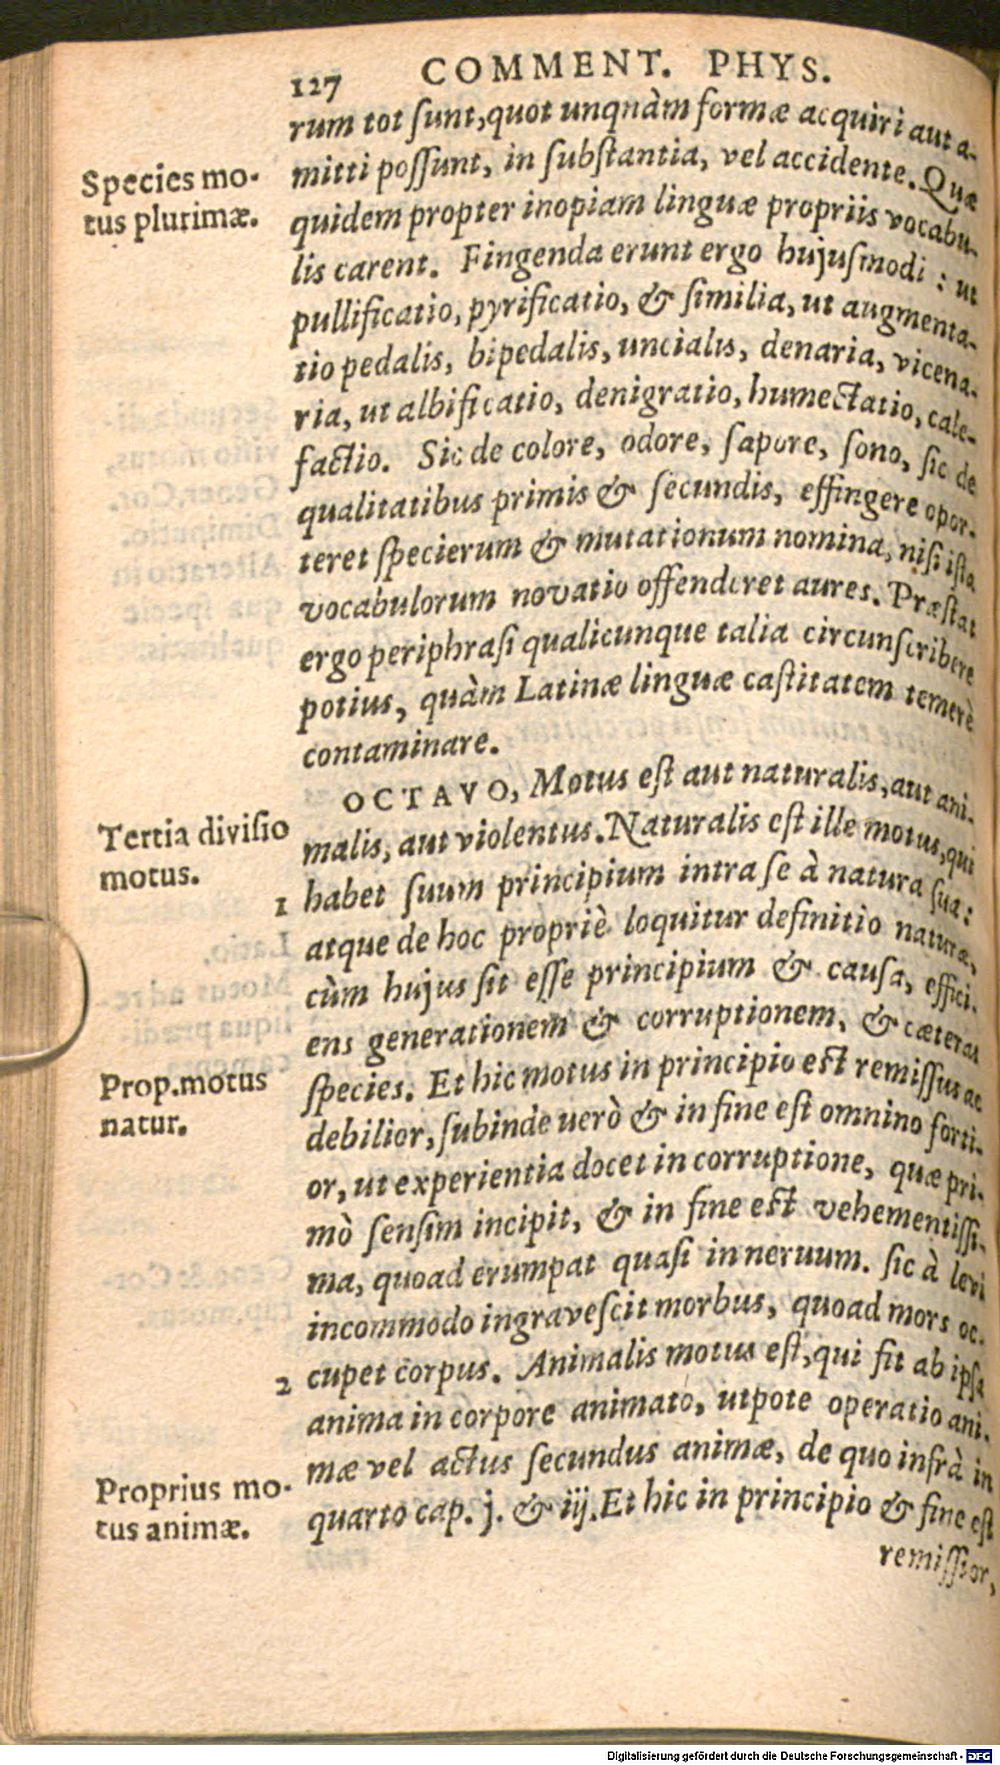 127 COMMENT. PHYS.
rum tot ſunt, quot unquàm formæ acquiri aut a-
mitti poſſunt, in ſubſtantia, vel accidente. Quæ
quidem propter inopiam linguæ propriis vocabu-
lis carent. Fingenda erunt ergo hujuſmodi : ut
pullificatio, pyrificatio, & ſimilia, ut augmenta-
tio pedalis, bipedalis, uncialis, denaria, vicena-
ria, ut albificatio, denigratio, humectatio, cale-
factio. Sic de colore, odore, ſapore, ſono, ſic de
qualitatibus primis & ſecundis, effingere opor-
teret ſpecierum & mutationum nomina, niſi iſta
vocabulorum novatio offenderet aures. Præſtat
ergo periphraſi qualicunque talia circunſcribere
potius, quàm Latinæ linguæ caſtitatem temerè
contaminare.
OCTAVO, Motus eſt aut naturalis, aut ani-
malis, aut violentus. Naturalis eſt ille motus, qui
habet ſuum principium intra ſe à natura ſua:
atque de hoc propriè loquitur definitio naturæ,
cùm hujus ſit eſſe principium & cauſa, effici-
ens generationem & corruptionem, & cæteras
ſpecies. Et hic motus in principio eſt remiſſus ac
debilior, ſubinde verò & in fine eſt omnino forti-
or, ut experientia docet in corruptione, quæ pri-
mò ſenſim incipit, & in fine eſt vehementiſſi-
ma, quoad erumpat quaſi in neruum. ſic à levi
incommodo ingraveſcit morbus, quoad mors oc-
cupet corpus. Animalis motus eſt, qui fit ab ipſa
anima in corpore animato, utpote operatio ani-
mæ vel actus ſecundus animæ, de quo infrà in
quarto cap. j. & iij. Et hic in principio & fine eſt
remiſſior,
Species mo-
tus plurimæ.
Tertia diviſio
motus.
1
Prop. motus
natur.
2
Proprius mo-
tus animæ.
Digitalisierung gefördert durch die Deutsche Forschungsgemeinschaft - DFG